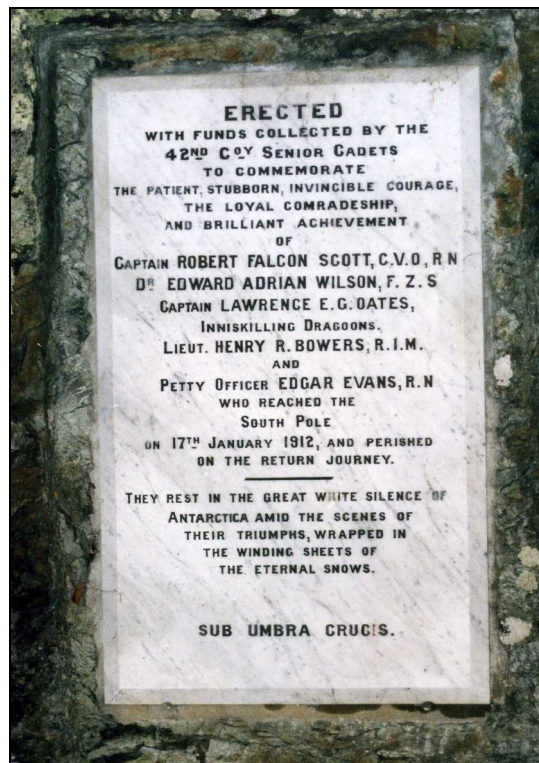 ERECTED
WITH FUNDS COLLECTED BY THE
42ND COY SENIOR CADETS
TO COMMEMORATE
THE PATIENT, STUBBORN, INVINCIBLE COURAGE,
THE LOYAL COMRADESHIP,
AND BRILLIANT ACHIEVEMENT
OF
CAPTAIN ROBERT FALCON SCOTT, C.V.O, R N
DR EDWARD ADRIAN WILSON, F. Z. S
CAPTAIN LAWRENCE E. G. OATES,
INNISKILLING DRAGOONS.
LIEUT. HENRY R. BOWERS, R.I.M.
AND
PETTY OFFICER EDGAR EVANS, R.N
WHO REACHED THE
SOUTH POLE
ON 17TH JANUARY 1912, AND PERISHED
ON THE RETURN JOURNEY.
THEY REST IN THE GREAT WHITE SILENCE OF
ANTARCTICA AMID THE SCENES OF
THEIR TRIUMPHS, WRAPPED IN
THE WINDING SHEETS OF
THE ETERNAL SNOWS.
SUB UMBRA CRUCIS.